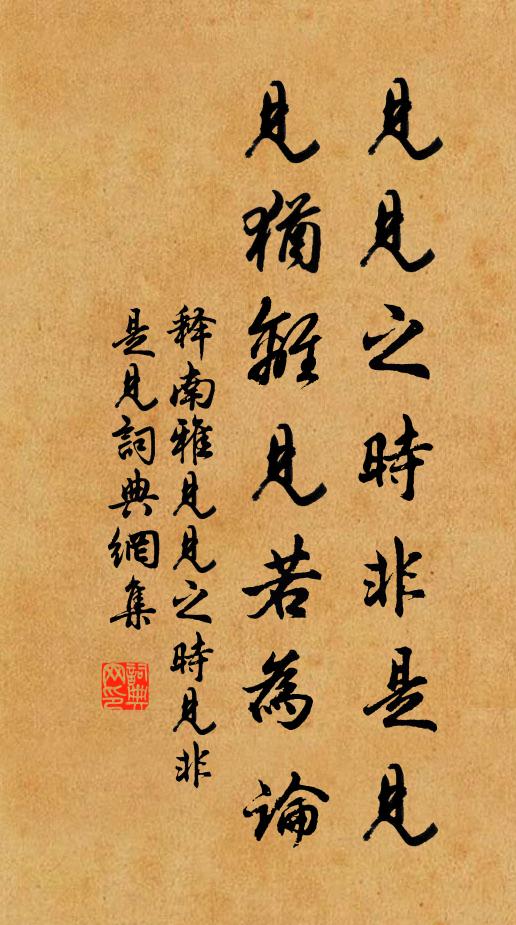 見見之時非是見
見猶離見若為論
释南雅見見之時見非
是見詞典網集
詞典
网印